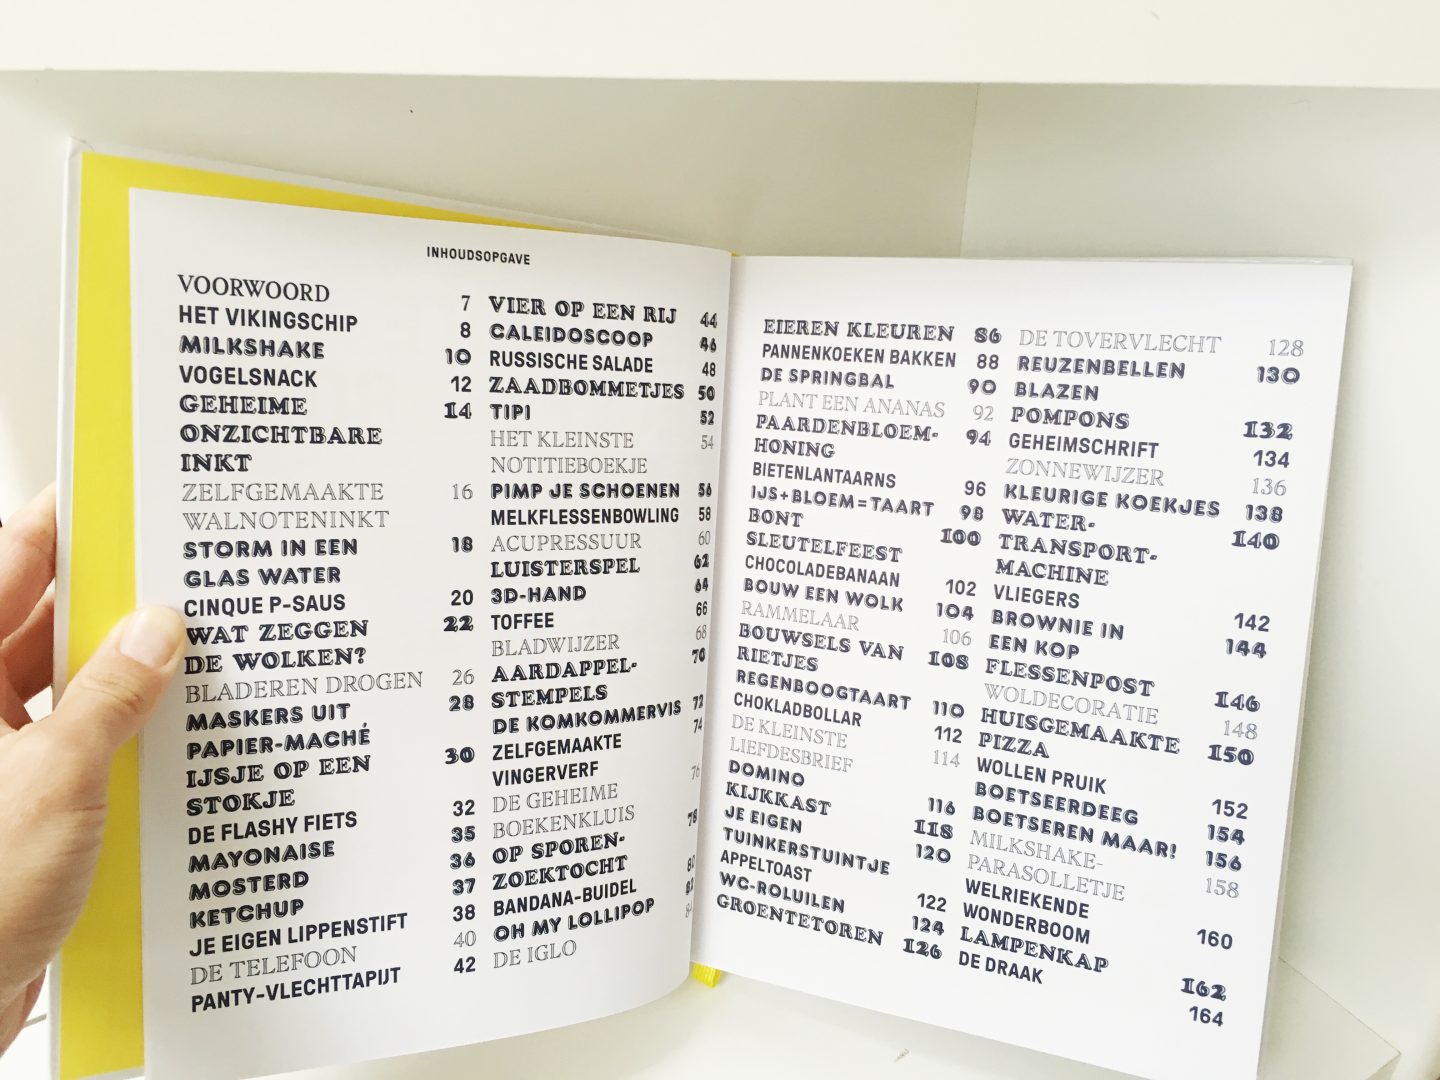 INHOUDSOPGAVE
VOORWOORD 7
HET VIKINGSCHIP 8
MILKSHAKE 10
VOGELSNACK 12
GEHEIME 14
ONZICHTBARE
INKT
ZELFGEMAAKTE 16
WALNOTENINKT
STORM IN EEN 18
GLAS WATER
CINQUE P-SAUS 20
WAT ZEGGEN 22
DE WOLKEN?
BLADEREN DROGEN 26
MASKERS UIT 28
PAPIER-MACHÉ
IJSJE OP EEN 30
STOKJE
DE FLASHY FIETS 32
MAYONAISE 35
MOSTERD 36
KETCHUP 37
JE EIGEN LIPPENSTIFT 38
DE TELEFOON 40
PANTY-VLECHTTAPIJT 42
VIER OP EEN RIJ 44
CALEIDOSCOOP 46
RUSSISCHE SALADE 48
ZAADBOMMETJES 50
TIPI 52
HET KLEINSTE 54
NOTITIEBOEKJE
PIMP JE SCHOENEN 56
MELKFLESSENBOWLING 58
ACUPRESSUUR 60
LUISTERSPEL 62
3D-HAND 64
TOFFEE 66
BLADWIJZER 68
AARDAPPEL- 70
STEMPELS
DE KOMKOMMERVIS 72
ZELFGEMAAKTE 74
VINGERVERF
DE GEHEIME 76
BOEKENKLUIS
OP SPOREN- 78
ZOEKTOCHT
BANDANA-BUIDEL 80
OH MY LOLLIPOP 82
DE IGLO
EIEREN KLEUREN 86
PANNENKOEKEN BAKKEN 88
DE SPRINGBAL 90
PLANT EEN ANANAS 92
PAARDENBLOEM- 94
HONING
BIETENLANTAARNS 96
IJS+BLOEM=TAART 98
BONT 100
SLEUTELFEEST
CHOCOLADEBANAAN 102
BOUW EEN WOLK 104
RAMMELAAR 106
BOUWSELS VAN 108
RIETJES
REGENBOOGTAART 110
CHOKLADBOLLAR 112
DE KLEINSTE 114
LIEFDESBRIEF
DOMINO 116
KIJKKAST 118
JE EIGEN 120
TUINKERSTUINTJE
APPELTOAST 122
WC-ROLUILEN 124
GROENTETOREN 126
DE TOVERVLECHT 128
REUZENBELLEN 130
BLAZEN
POMPONS 132
GEHEIMSCHRIFT 134
ZONNEWIJZER 136
KLEURIGE KOEKJES 138
WATER- 140
TRANSPORT-
MACHINE
VLIEGERS 142
BROWNIE IN 144
EEN KOP
FLESSENPOST 146
WOLDECORATIE 148
HUISGEMAAKTE 150
PIZZA
WOLLEN PRUIK 152
BOETSEERDEEG 154
BOETSEREN MAAR! 156
MILKSHAKE- 158
PARASOLLETJE
WELRIEKENDE 160
WONDERBOOM
LAMPENKAP 162
DE DRAAK 164